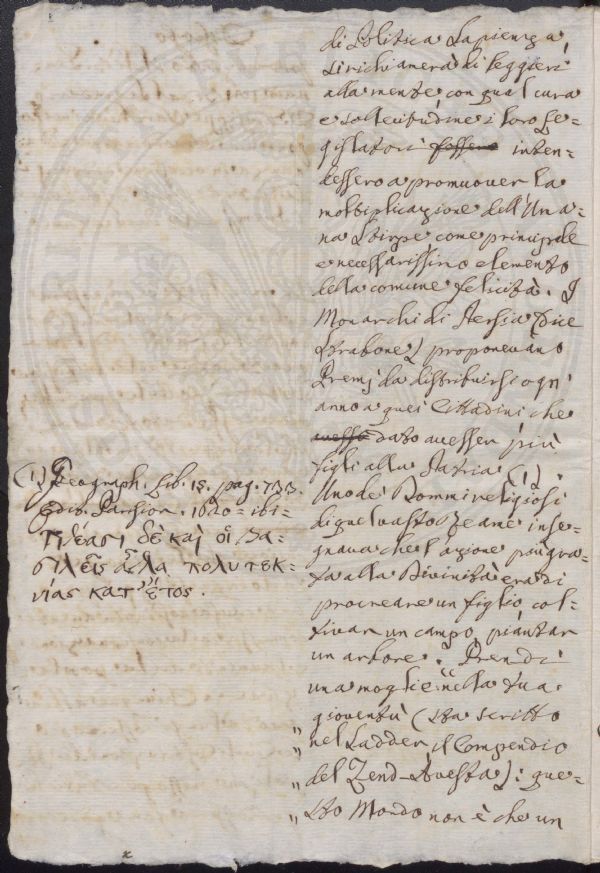 di Politica Sapienza,
si richiamerà di leggieri
alla mente con qual cura
e sollecitudine i loro Le-
gislatori fossero inten-
dessero a promuover la
moltiplicazione dell'Uma-
na Stirpe come principale
e necessarissimo elemento
della comune felicità. I
Monarchi di Persia (dice
Strabone) proponevano
Premj da distribuirsi ogni
anno a quei Cittadini che
avesse dato avesser più
figli alla Patria (1).
Uno de' Dommi religiosi
di quel vasto Reame inse-
gnava che l'azione più gra-
ta alla Divinità era di
procreare un figlio, col-
tivar un campo, piantar
un arbore. Prendi
una moglie nella tua
gioventù (sta scritto
„ nel Sadder, il Compendio
„ del Zend-Avesta): que-
„ sto Mondo non è che un
(1) Geograph. Lib. 15. pag. 733.
Edit. Parisior. 1620 = ibi =
τιθέασι δὲ καὶ οἱ βα-
σιλεῖς ἆθλα πολυτεκ-
νίας κατ' ἔτος.